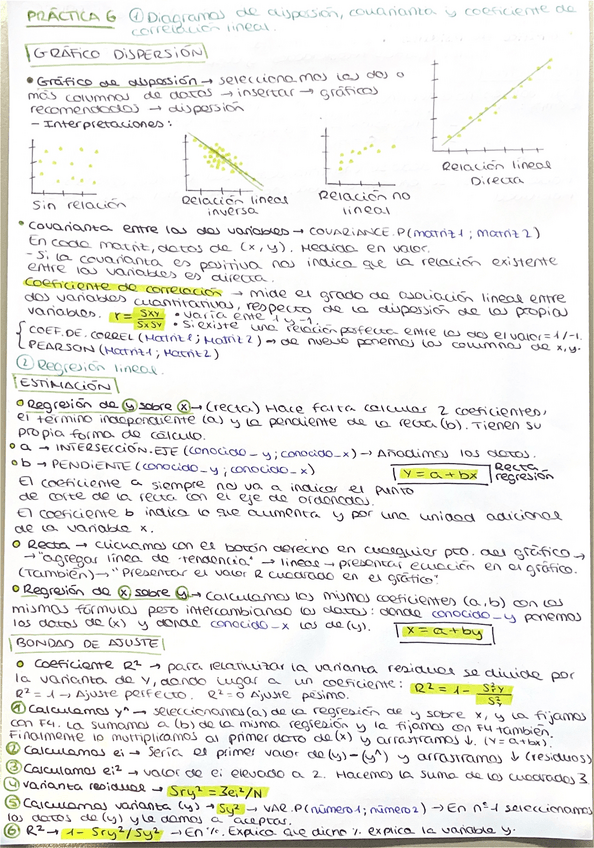 PRÁCTICA 6 ① Diagramas de dispersión, covarianta y coeficiente de
correlación lineal.
GRÁFICO DISPERSIÓN
• Gráfico de dispersión → seleccionamos las dos o
más columnas de datos → insertar → gráficos
recomendados → dispersión
- Interpretaciones:
Sin relación
Relación lineal
inversa
Relación no
lineal
Relación lineal
Directa
• Covarianta entre las dos variables → COVARIANCE.P(matriz1; matriz2)
En cada matriz, datos de (x, y). Medida en valor.
- Si la covarianta es positiva nos indica que la relación existente
entre las variables es directa.
Coeficiente de correlación → mide el grado de asociación lineal entre
dos variables cuantitativas, respecto de la dispersión de las propias
variables. r = Sxy / SxSy • varía entre 1 y -1.
• Si existe una relación perfecta entre las dos el valor = 1/-1.
COEF.DE.CORREL (Matriz1; Matriz2) → de nuevo ponemos las columnas de x,y.
PEARSON (Matriz1; Matriz2)
② Regresión lineal.
ESTIMACIÓN
• Regresión de y sobre x → (recta) Hace falta calcular 2 coeficientes,
el término independiente (a) y la pendiente de la recta (b). Tienen su
propia forma de cálculo.
• a → INTERSECCIÓN.EJE (conocido_y; conocido_x) → Añadimos los datos.
• b → PENDIENTE (conocido_y; conocido_x)
y = a + bx Recta
regresión
El coeficiente a siempre nos va a indicar el punto
de corte de la recta con el eje de ordenadas.
El coeficiente b indica lo que aumenta y por una unidad adicional
de la variable x.
• Recta → clickamos con el botón derecho en cualquier pto. del gráfico →
→ "agregar línea de tendencia" → lineal → presentar ecuación en el gráfico.
(También) → "Presentar el valor R cuadrado en el gráfico".
• Regresión de x sobre y → calculamos los mismos coeficientes (a,b) con las
mismas fórmulas pero intercambiando los datos: donde conocido_y ponemos
los datos de (x) y donde conocido_x los de (y). x = a + by
BONDAD DE AJUSTE
• Coeficiente R² → para relativizar la varianta residual se divide por
la varianta de Y, dando lugar a un coeficiente: R² = 1 - S²rY / S²Y
R² = 1 → Ajuste perfecto. R² = 0 Ajuste pésimo.
① Calculamos y^ → seleccionamos (a) de la regresión de y sobre x, y la fijamos
con F4. La sumamos a (b) de la misma regresión y la fijamos con F4 también.
Finalmente lo multiplicamos al primer dato de (x) y arrastramos ↓. (Y=a+bx).
② Calculamos ei → Sería el primer valor de (y) - (y^) y arrastramos ↓ (residuos)
③ Calculamos ei² → valor de ei elevado a 2. Hacemos la suma de los cuadrados 3.
④ Varianta residual → Sry² = 3ei²/N
⑤ Calculamos varianta (y) → Sy² → VAR.P(número1; número2) → En nº 1 seleccionamos
los datos de (y) y le damos a aceptar.
⑥ R² → 1 - Sry²/Sy² → En %. Explica que dicho % explica la variable y.